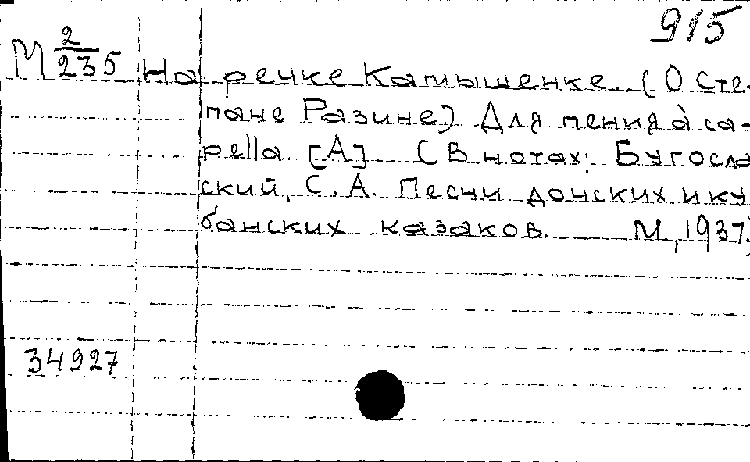 915
М 2/235 На речке Камышенке. (О Сте-
пане Разине). Для пения à ca-
pella. [А] (В нотах: Бугосла
ский, С.А. Песни донских и ку
банских казаков. М, 1937.)
34927